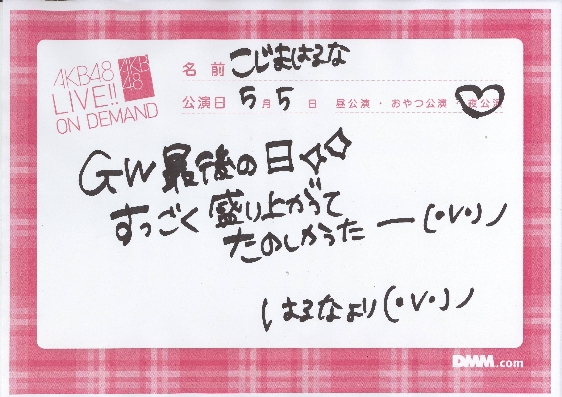 AKB48
LIVE!!
ON DEMAND
AKB
48
名前 こじまはるな
公演日 5月5日 昼公演・おやつ公演・夜公演
GW最後の日✧✧
すっごく盛り上がって
たのしかったー(・v・)ノ
はるなより(・v・)ノ
DMM.com